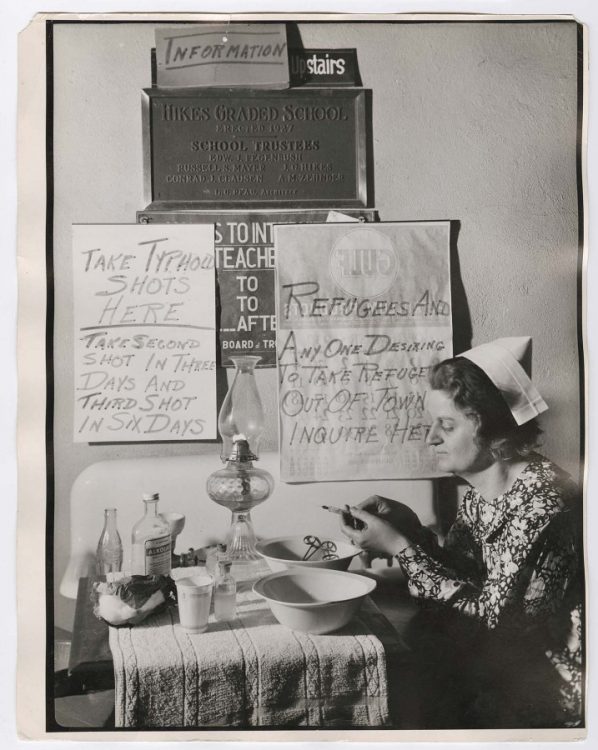 INFORMATION
upstairs
HIKES GRADED SCHOOL
ERECTED 1927
SCHOOL TRUSTEES
EDW. J. FEGENBUSH
RUSSELL S. MAYER J. C. HIKES
CONRAD J. CLAUSEN A. M. ZEHNDER
ARCHITECT
TAKE TYPHOID
SHOTS
HERE
TAKE SECOND
SHOT IN THREE
DAYS AND
THIRD SHOT
IN SIX DAYS
S TO INT
TEACHE
TO
TO
AFTE
BOARD of TRU
GULF
REFUGEES AND
ANY ONE DESIRING
TO TAKE REFUGE
OUT OF TOWN
INQUIRE HE
ALKOLOL